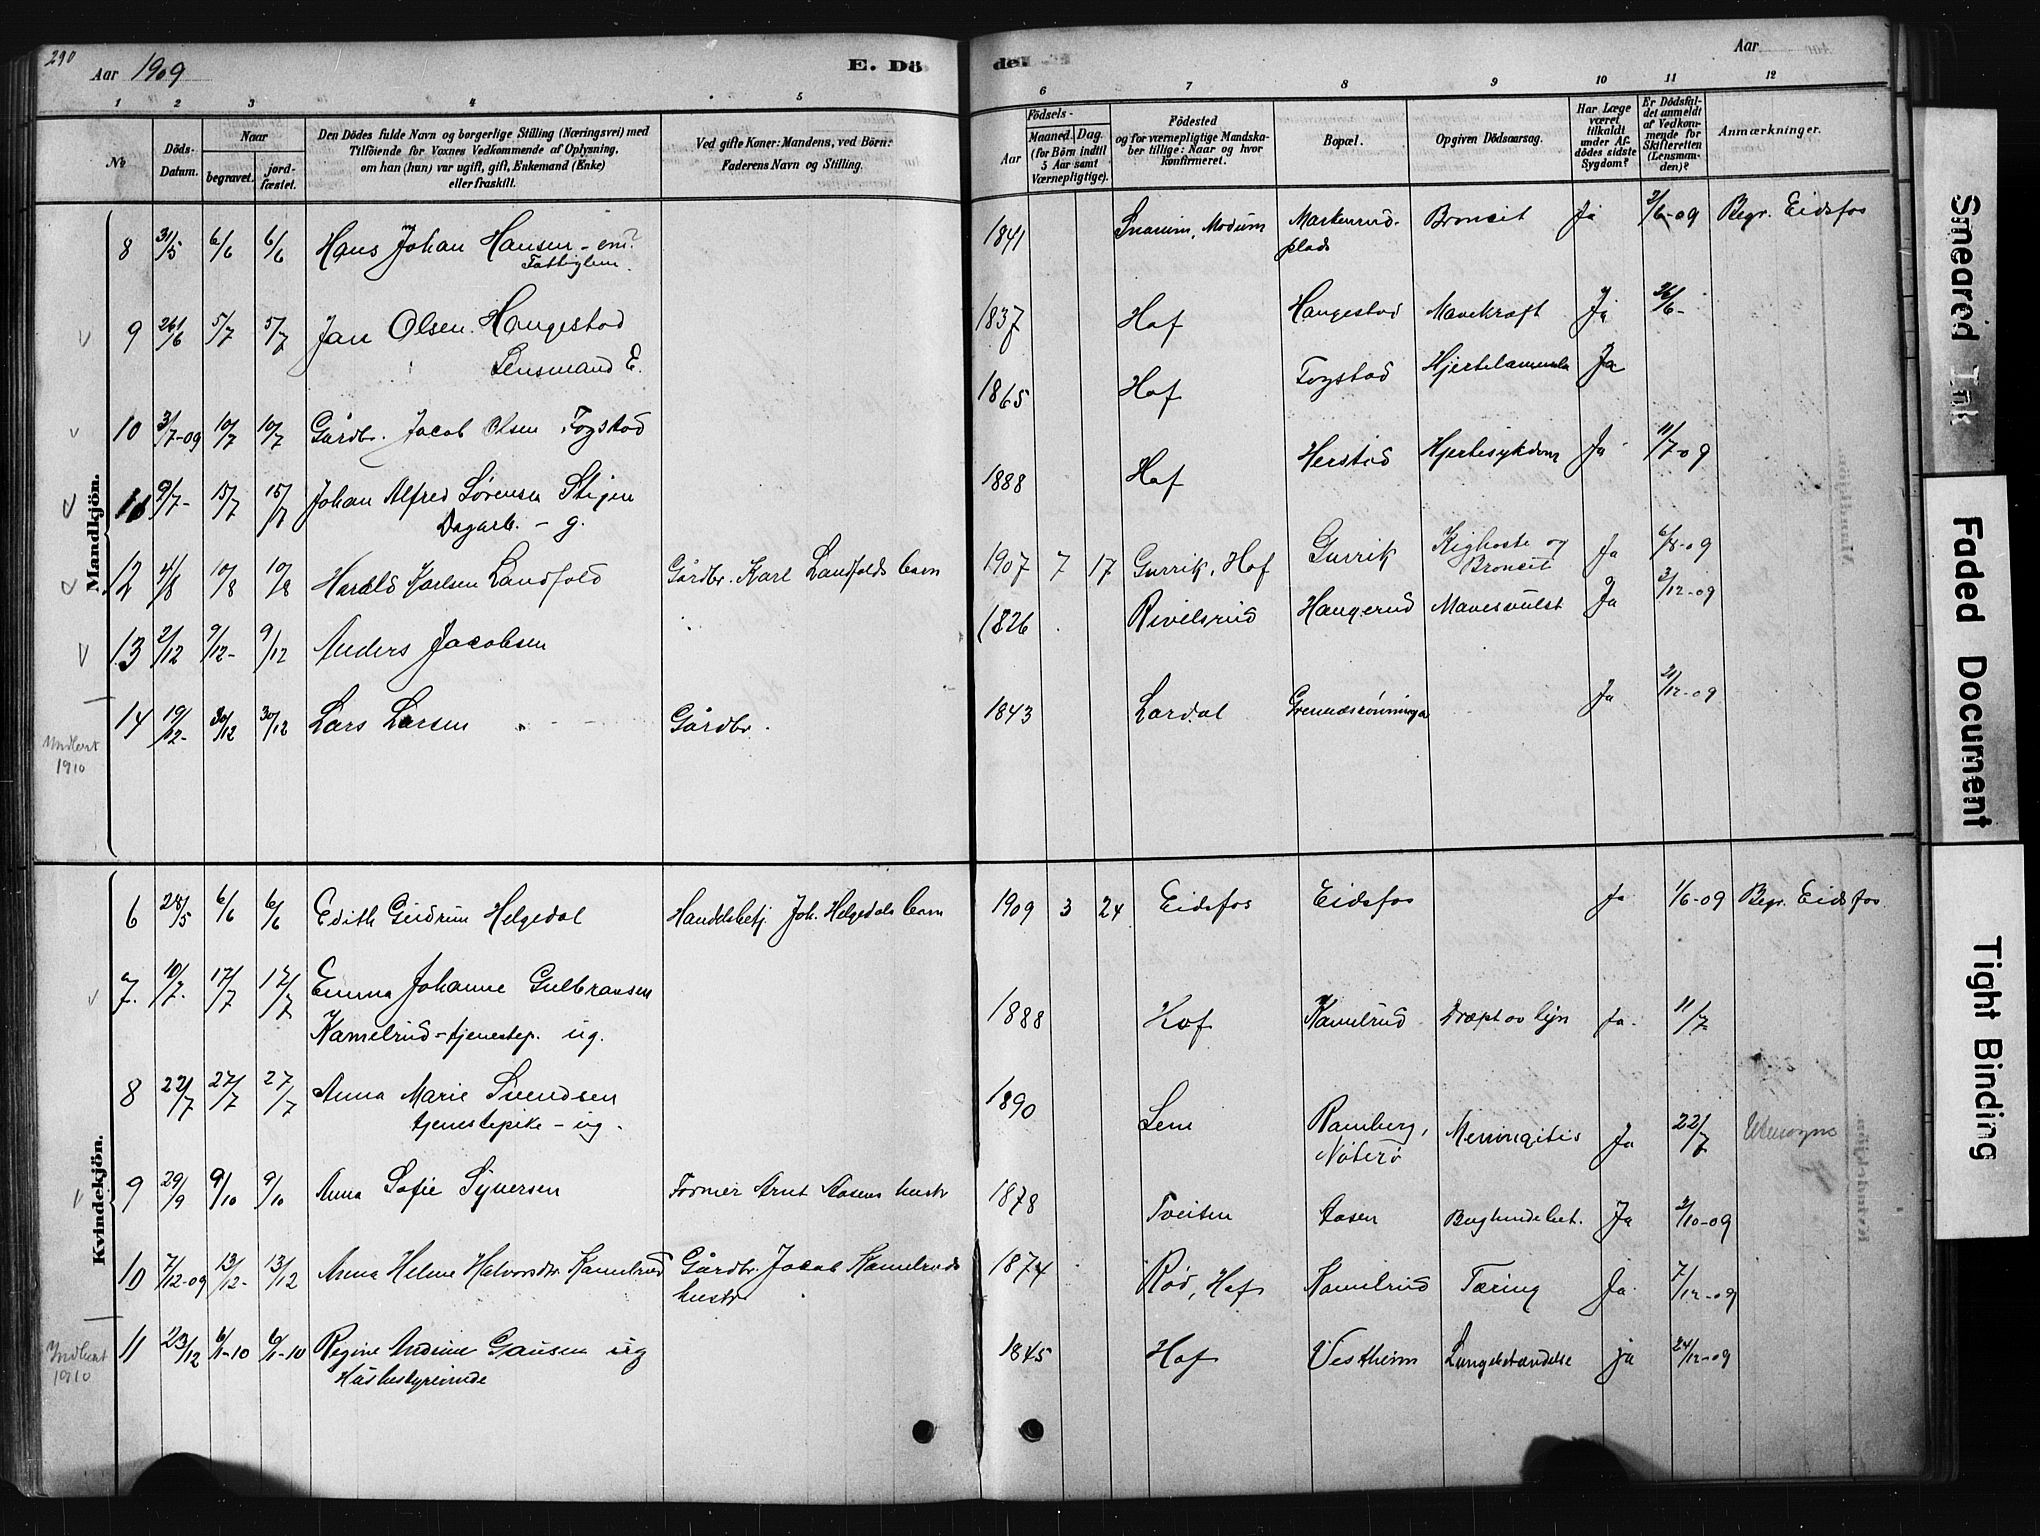 290
Aar 1909
E. Dö
de.
Aar
1 2 3 4 5 6 7 8 9 10 11 12
No
Döds-Datum.
Naar
begravet.
jord-fæstet.
Den Dödes fulde Navn og borgerlige Stilling (Næringsvei) med
Tilföiende for Voxnes Vedkommende af Oplysning,
om han (hun) var ugift, gift, Enkemand (Enke)
eller fraskilt.
Ved gifte Koner: Mandens, ved Börn:
Faderens Navn og Stilling.
Födsels-
Aar
Maaned. Dag.
(for Börn indtil
5 Aar samt
Værnepligtige).
Födested
og for værnepligtige Mandska-
ber tillige: Naar og hvor
konfirmeret.
Bopæl.
Opgiven Dödsaarsag.
Har Læge
været
tilkaldt
under Af-
dödes sidste
Sygdom?
Er Dödsfal-
det anmeldt
af Vedkom-
mende for
Skifteretten
(Lensman-
den)?
Anmærkninger.
Mandkjön.
8 31/5 6/6 6/6 Hans Johan Hansen - em? 1841 Snarum, Modum Markenrud. Broncit Ja 2/6-09 Begr. Eidsfos
Fattiglem. plads
9 26/6 5/7 5/7 Jan Olsen Haugestad 1837 Hof Haugestad Mavekræft Ja 26/6-
Lensmand E.
10 3/7-09 10/7 10/7 Gårdbr. Jacob Olsen Fogstad 1865 Hof Fogstad Hjertelammelse Ja
11 9/7- 15/7 15/7 Johan Alfred Sørensen Stigen 1888 Hof Herstad Hjertesykdom Ja 11/7-09
Dagarb. - g.
12 4/8 10/8 10/8 Harald Karlsen Landfald Gårdbr. Karl Landfalds barn 1907 7 17 Gurrik, Hof Gurrik Kighoste og Ja 6/8-09
Broncit
13 2/12 9/12- 9/12 Anders Jacobsen 1826 Rivelsrud Haugerud Mavesvulst Ja 3/12-09
14 19/12- 30/12 30/12 Lars Larsen Gårdbr. 1843 Lardal Ja 21/12-09
Indbert
1910
Kvindekjön.
6 28/5 6/6 6/6 Edith Gudrun Helgedal Handelsbetj. Joh. Helgedals barn 1909 3 24 Eidsfos Eidsfos Ja 1/6-09 Begr. Eidsfos
7. 10/7. 17/7 17/7 Emma Johanne Gulbransen 1888 Hof Kamelrud Dræpt av lyn Ja. 11/7
Kamelrud - tjenestep. ug.
8 22/7 27/7 27/7 Anna Marie Svendsen 1890 Sem Ramberg, Meningitis Ja 22/7 Utensogns
tjenestepike - ug. Nøterø
9 29/9 9/10 9/10 Anna Sofie Syversen Former Arnt Aasens hustr 1878 Tveiten Aasen Bughindebet. Ja 2/10-09
10 7/12-09 13/12- 13/12 Anna Helene Halvorsdtr. Kamelrud Gårdbr. Jacob Kamelruds 1874 Rød, Hof Kamelrud Tæring Ja 7/12-09
hustr
11 23/12 6/1-10 6/1-10 Regine Andrine Gausen ug 1845 Hof Vestheim Lungebetændelse ja 24/12-09
Husbestyrerinde
Indbert
1910
Smeared Ink
Faded Document
Tight Binding